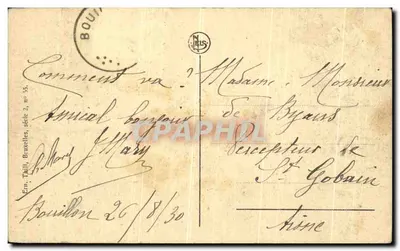 BOUI
NELS
Comment va ?
Amical bonjour
J Mary
Bouillon 26/8/30
Madame, Monsieur
de
Percepteur de
St Gobain
Aisne
Ern. Thill, Bruxelles, série 2, n° 55.
CPARAMA